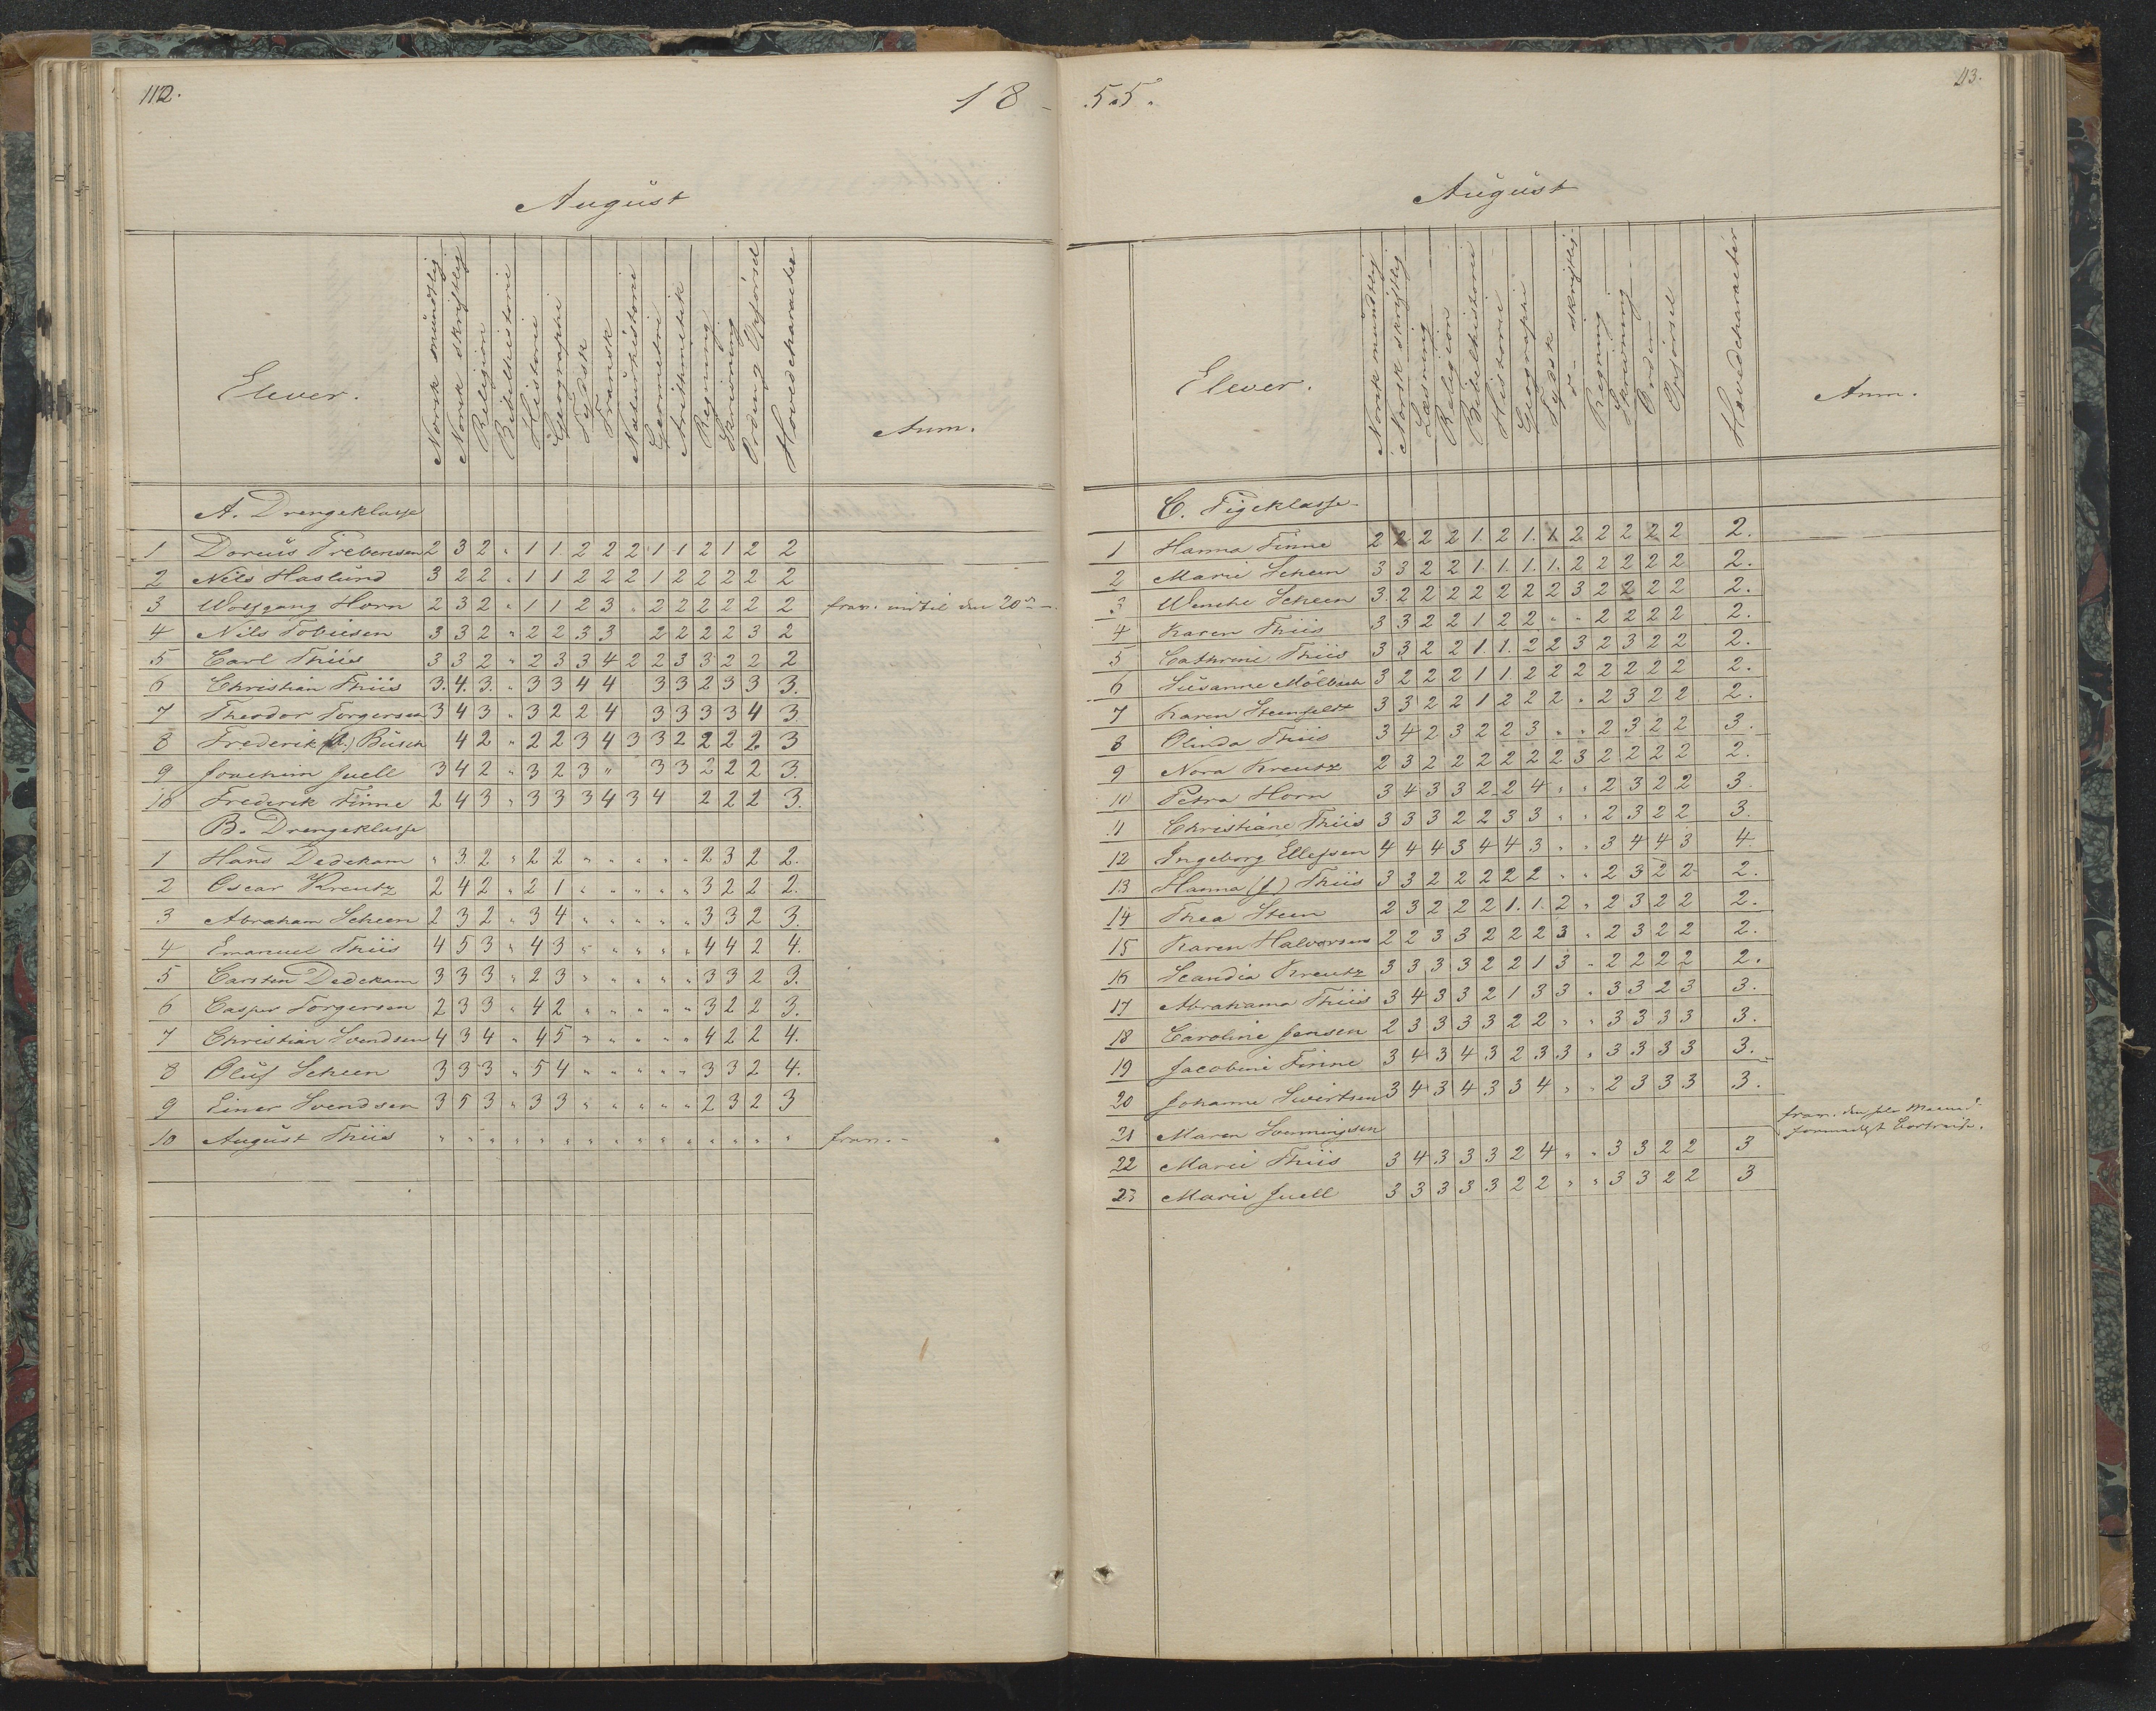 112.
18
August
Elever. Norsk mündtlig Norsk skriftlig Religion Bibelhistorie Historie Geographi Tydsk Fransk Naturhistorie Geometri Arithmetik Regning Skrivning Orden Opförsel Hovedcharacter Anm.
A. Drengeklasse
1 Doreüs Prebensen 2 3 2 " 1 1 2 2 2 1 1 2 1 2 2
2 Nils Haslünd 3 2 2 " 1 1 2 2 2 1 2 2 2 2 2
3 Wolfgang Horn 2 3 2 " 1 1 2 3 " 2 2 2 2 2 2 frav. indtil den 20de
4 Nils Tobiesen 3 3 2 " 2 2 3 3 2 2 2 2 3 2
5 Carl Thiis 3 3 2 " 2 3 3 4 2 2 3 3 2 2 2
6 Christian Thiis 3. 4. 3. " 3 3 4 4 3 3 2 3 3 3.
7 Theodor Torgersen 3 4 3 " 3 2 2 4 3 3 3 3 4 3
8 Frederik Büsch 4 2 " 2 2 3 4 3 3 2 2 2 2 3
9 Joachim Juell 3 4 2 " 3 2 3 " 3 3 2 2 2 3.
10 Frederik Finne 2 4 3 " 3 3 3 4 3 4 2 2 2 3.
B. Drengeklasse
1 Hans Dedekam " 3 2 " 2 2 " " " " " 2 3 2 2.
2 Oscar Kreutz 2 4 2 " 2 1 " " " " " 3 2 2 2.
3 Abraham Scheen 2 3 2 " 3 4 " " " " " 3 3 2 3.
4 Emanuel Thiis 4 5 3 " 4 3 " " " " " 4 4 2 4.
5 Carsten Dedekam 3 3 3 " 2 3 " " " " " 3 3 2 3.
6 Casper Torgersen 2 3 3 " 4 2 " " " " " 3 2 2 3.
7 Christian Svendsen 4 3 4 " 4 5 " " " " " 4 2 2 4.
8 Olüf Scheen 3 3 3 " 5 4 " " " " " 3 3 2 4.
9 Einer Svendsen 3 5 3 " 3 3 " " " " " 2 3 2 3
10 August Thiis " " " " " " " " " " " " " " " frav.
113.
55.
August
Elever. Norsk mündtlig Norsk skriftlig Læsning Religion Bibelhistorie Historie Geographi Tydsk do - skriftlig Regning Skrivning Orden Opförsel Hovedcharacter Anm.
C. Pigeklasse
1 Hanna Finne 2 2 2 2 1. 2 1. 1 2 2 2 2 2 2.
2 Marie Scheen 3 3 2 2 1. 1. 1. 1. 2 2 2 2 2 2.
3 Wenche Scheen 3 2 2 2 2 2 2 2 3 2 2 2 2 2.
4 Karen Thiis 3 3 2 2 1 2 2 " " 2 2 2 2 2.
5 Cathrine Thiis 3 3 2 2 1. 1. 2 2 3 2 3 2 2 2.
6 Susanne Mölbach 3 2 2 2 1 1 2 2 2 2 2 2 2 2.
7 Karen Steenfeldt 3 3 2 2 1 2 2 2 " 2 3 2 2 2.
8 Olinda Thiis 3 4 2 3 2 2 3 " " 2 3 2 2 3.
9 Nora Kreutz 2 3 2 2 2 2 2 2 3 2 2 2 2 2.
10 Petra Horn 3 4 3 3 2 2 4 " " 2 3 2 2 3.
11 Christiane Thiis 3 3 3 2 2 3 3 " " 2 3 2 2 3.
12 Ingeborg Ellefsen 4 4 4 3 4 4 3 " " 3 4 4 3 4.
13 Hanna (J) Thiis 3 3 2 2 2 2 2 " " 2 3 2 2 2.
14 Thea Steen 2 3 2 2 2 1. 1. 2 " 2 3 2 2 2.
15 Karen Halvorsen 2 2 3 3 2 2 2 3 " 2 3 2 2 2.
16 Scandia Kreutz 3 3 3 3 2 2 1 3 " 2 2 2 2 2.
17 Abrahama Thiis 3 4 3 3 2 1 3 3 " 3 3 2 3 3.
18 Caroline Jensen 2 3 3 3 3 2 2 " " 3 3 3 3 3.
19 Jacobine Finne 3 4 3 4 3 2 3 3 " 3 3 3 3 3.
20 Johanne Sivertsen 3 4 3 4 3 3 4 " " 2 3 3 3 3.
21 Maren Svenningsen frav. den hele Maaned
formedelst Bortreise.
22 Marie Thiis 3 4 3 3 3 2 4 " " 3 3 2 2 3
23 Marie Juell 3 3 3 3 3 2 2 " " 3 3 2 2 3